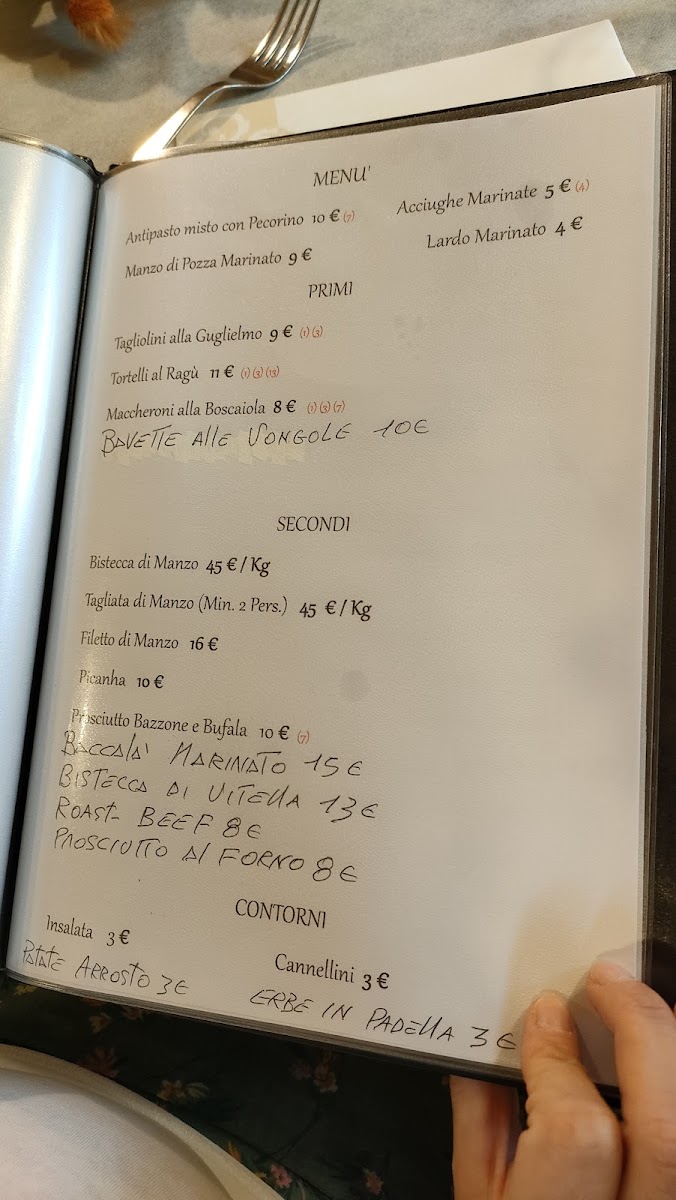 MENU'
Antipasto misto con Pecorino 10 € (7)
Acciughe Marinate 5 € (4)
Manzo di Pozza Marinato 9 €
Lardo Marinato 4 €
PRIMI
Tagliolini alla Guglielmo 9 € (1) (3)
Tortelli al Ragù 11 € (1) (3) (13)
Maccheroni alla Boscaiola 8 € (1) (3) (7)
BAVETTE AllE VONGOLE 10€
SECONDI
Bistecca di Manzo 45 € / Kg
Tagliata di Manzo (Min. 2 Pers.) 45 € / Kg
Filetto di Manzo 16 €
Picanha 10 €
Prosciutto Bazzone e Bufala 10 € (7)
BACCAlA' MARINATO 15 €
BISTECCA DI VITEllA 13€
ROAST- BEEF 8€
PROSCIUTTO Al FORNO 8€
CONTORNI
Insalata 3 €
Cannellini 3 €
PATATE ARROSTO 3€
ERBE IN PADEllA 3€